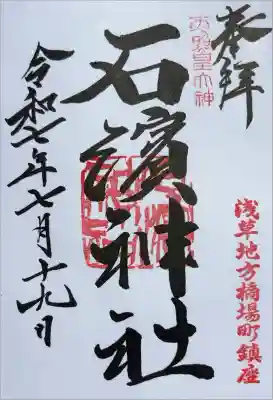 奉拝
天照皇大神
石濱神社
浅草地方橋場町鎮座
令和七年七月十九日